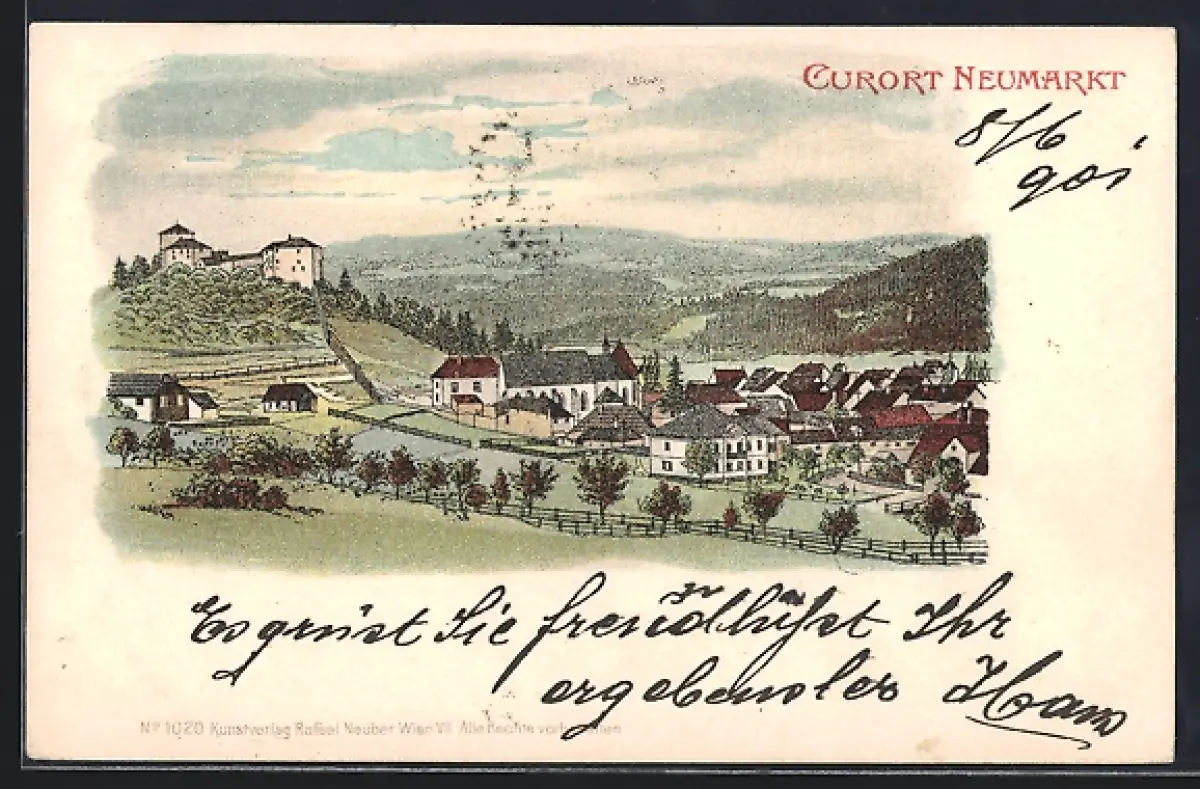 CURORT NEUMARKT
8/6
901
Es grüst Sie freundlichst Ihr
ergebenster Hans
No 1020 Kunstverlag Rafael Neuber Wien VII. Alle Rechte vorbehalten